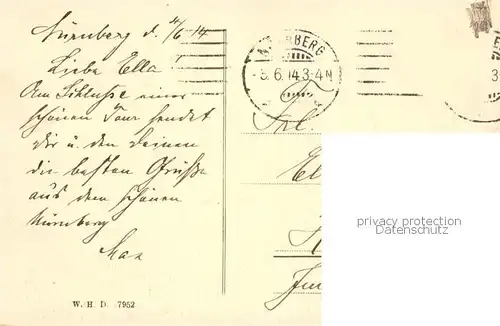 Nürnberg d. 4/6 14
Liebe Ella!
Am Schlusse einer
schönen Tour sendet
Dir u. den Deinen
die besten Grüße
aus dem schönen
Nürnberg
Max
W. H. D. 7952
NÜRNBERG
- 5.6.14.3-4N
Frl.
privacy protection
www.ansichtskarten-lexikon.de